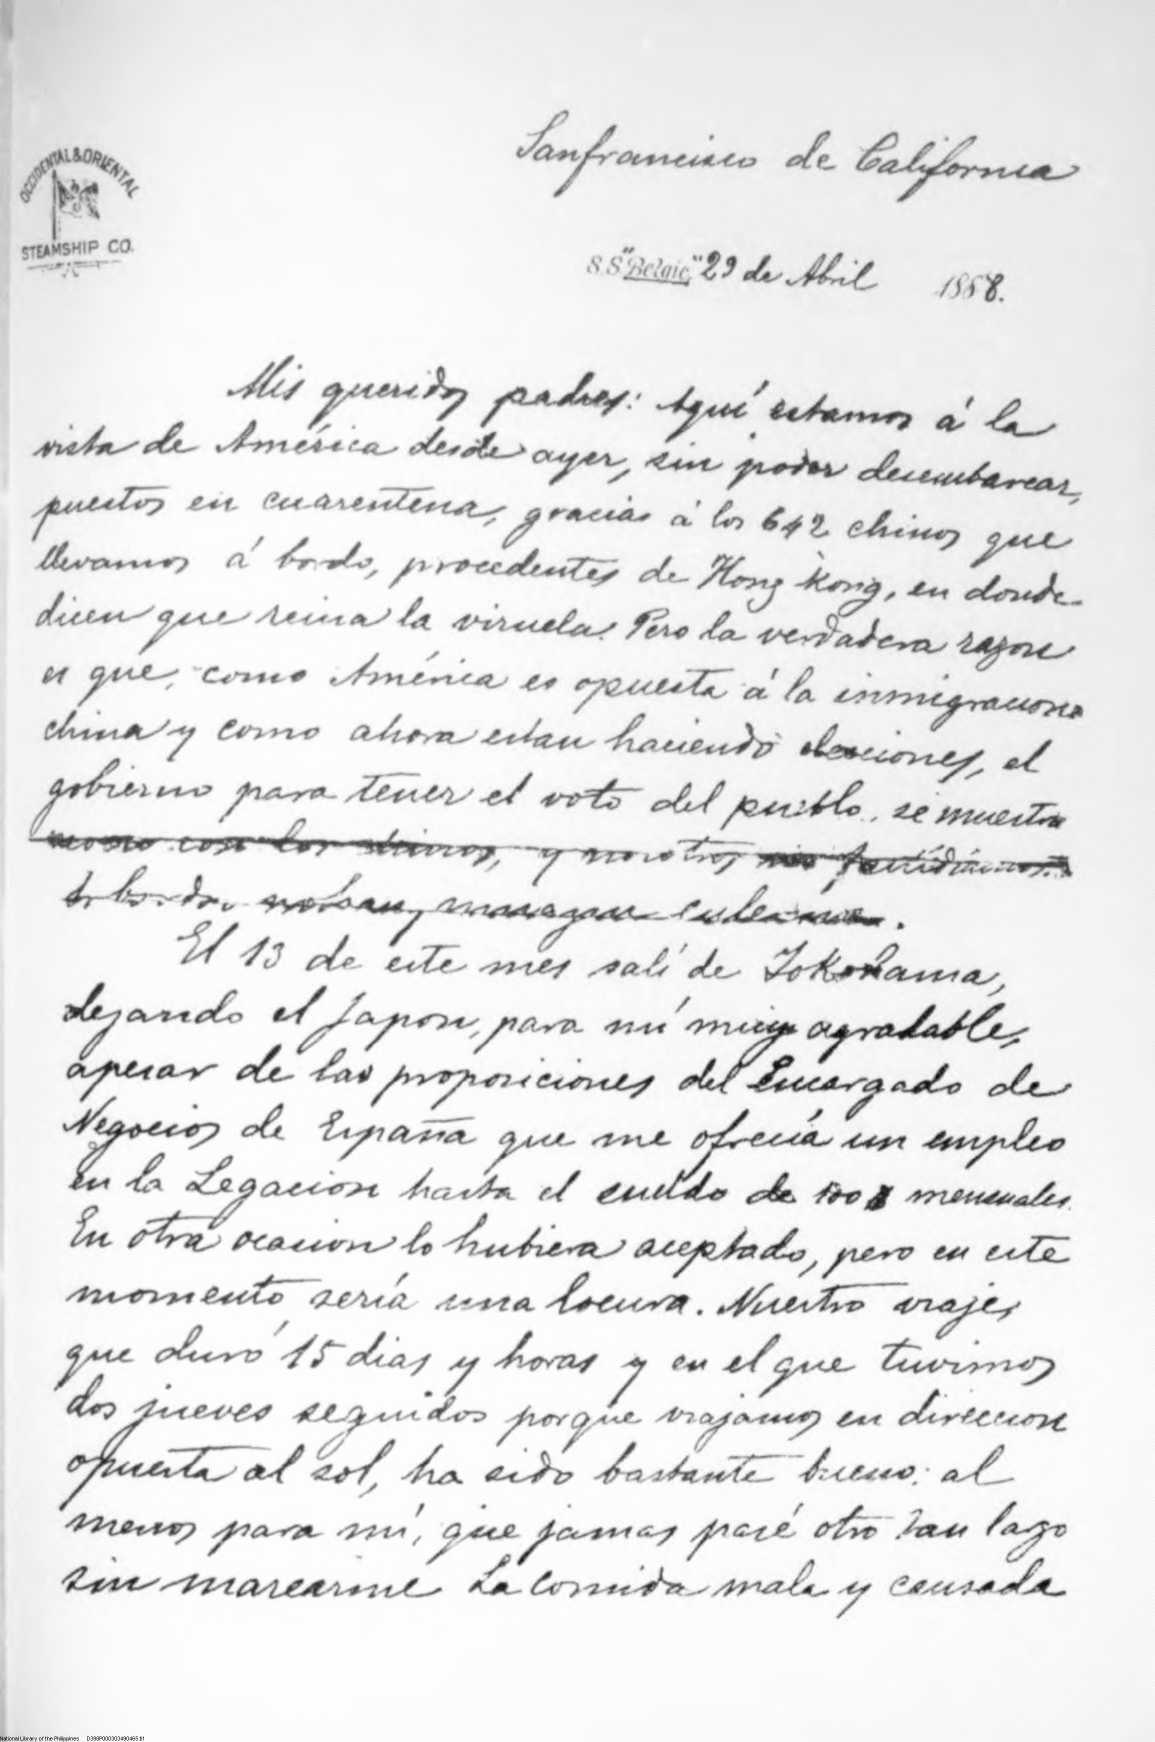 OCCIDENTAL & ORIENTAL
STEAMSHIP CO.
Sanfrancisco de California
S.S "Belgic," 29 de Abril 1888.
Mis queridos padres: Aquí estamos á la
vista de América desde ayer, sin poder desembarcar,
puestos en cuarentena, gracias á los 642 chinos que
llevamos á bordo, procedentes de Hong kong, en donde
dicen que reina la viruela. Pero la verdadera razon
es que, como América es opuesta á la inmigracion
china y como ahora estan haciendo elecciones, el
gobierno para tener el voto del pueblo, se muestra
con los chinos, y nosotros
á bordo.
El 13 de este mes salí de Yokohama,
dejando el Japon, para mí muy agradable,
apesar de las proposiciones del Encargado de
Negocios de España que me ofrecía un empleo
en la Legacion hasta el sueldo de 100 $ mensuales.
En otra ocasion lo hubiera aceptado, pero en este
momento sería una locura. Nuestro viaje,
que duró 15 dias y horas y en el que tuvimos
dos jueves seguidos porque viajamos en direccion
opuesta al sol, ha sido bastante bueno: al
menos para mí, que jamas pasé otro tan lago
sin marearme La comida mala y cansada
National Library of the Philippines